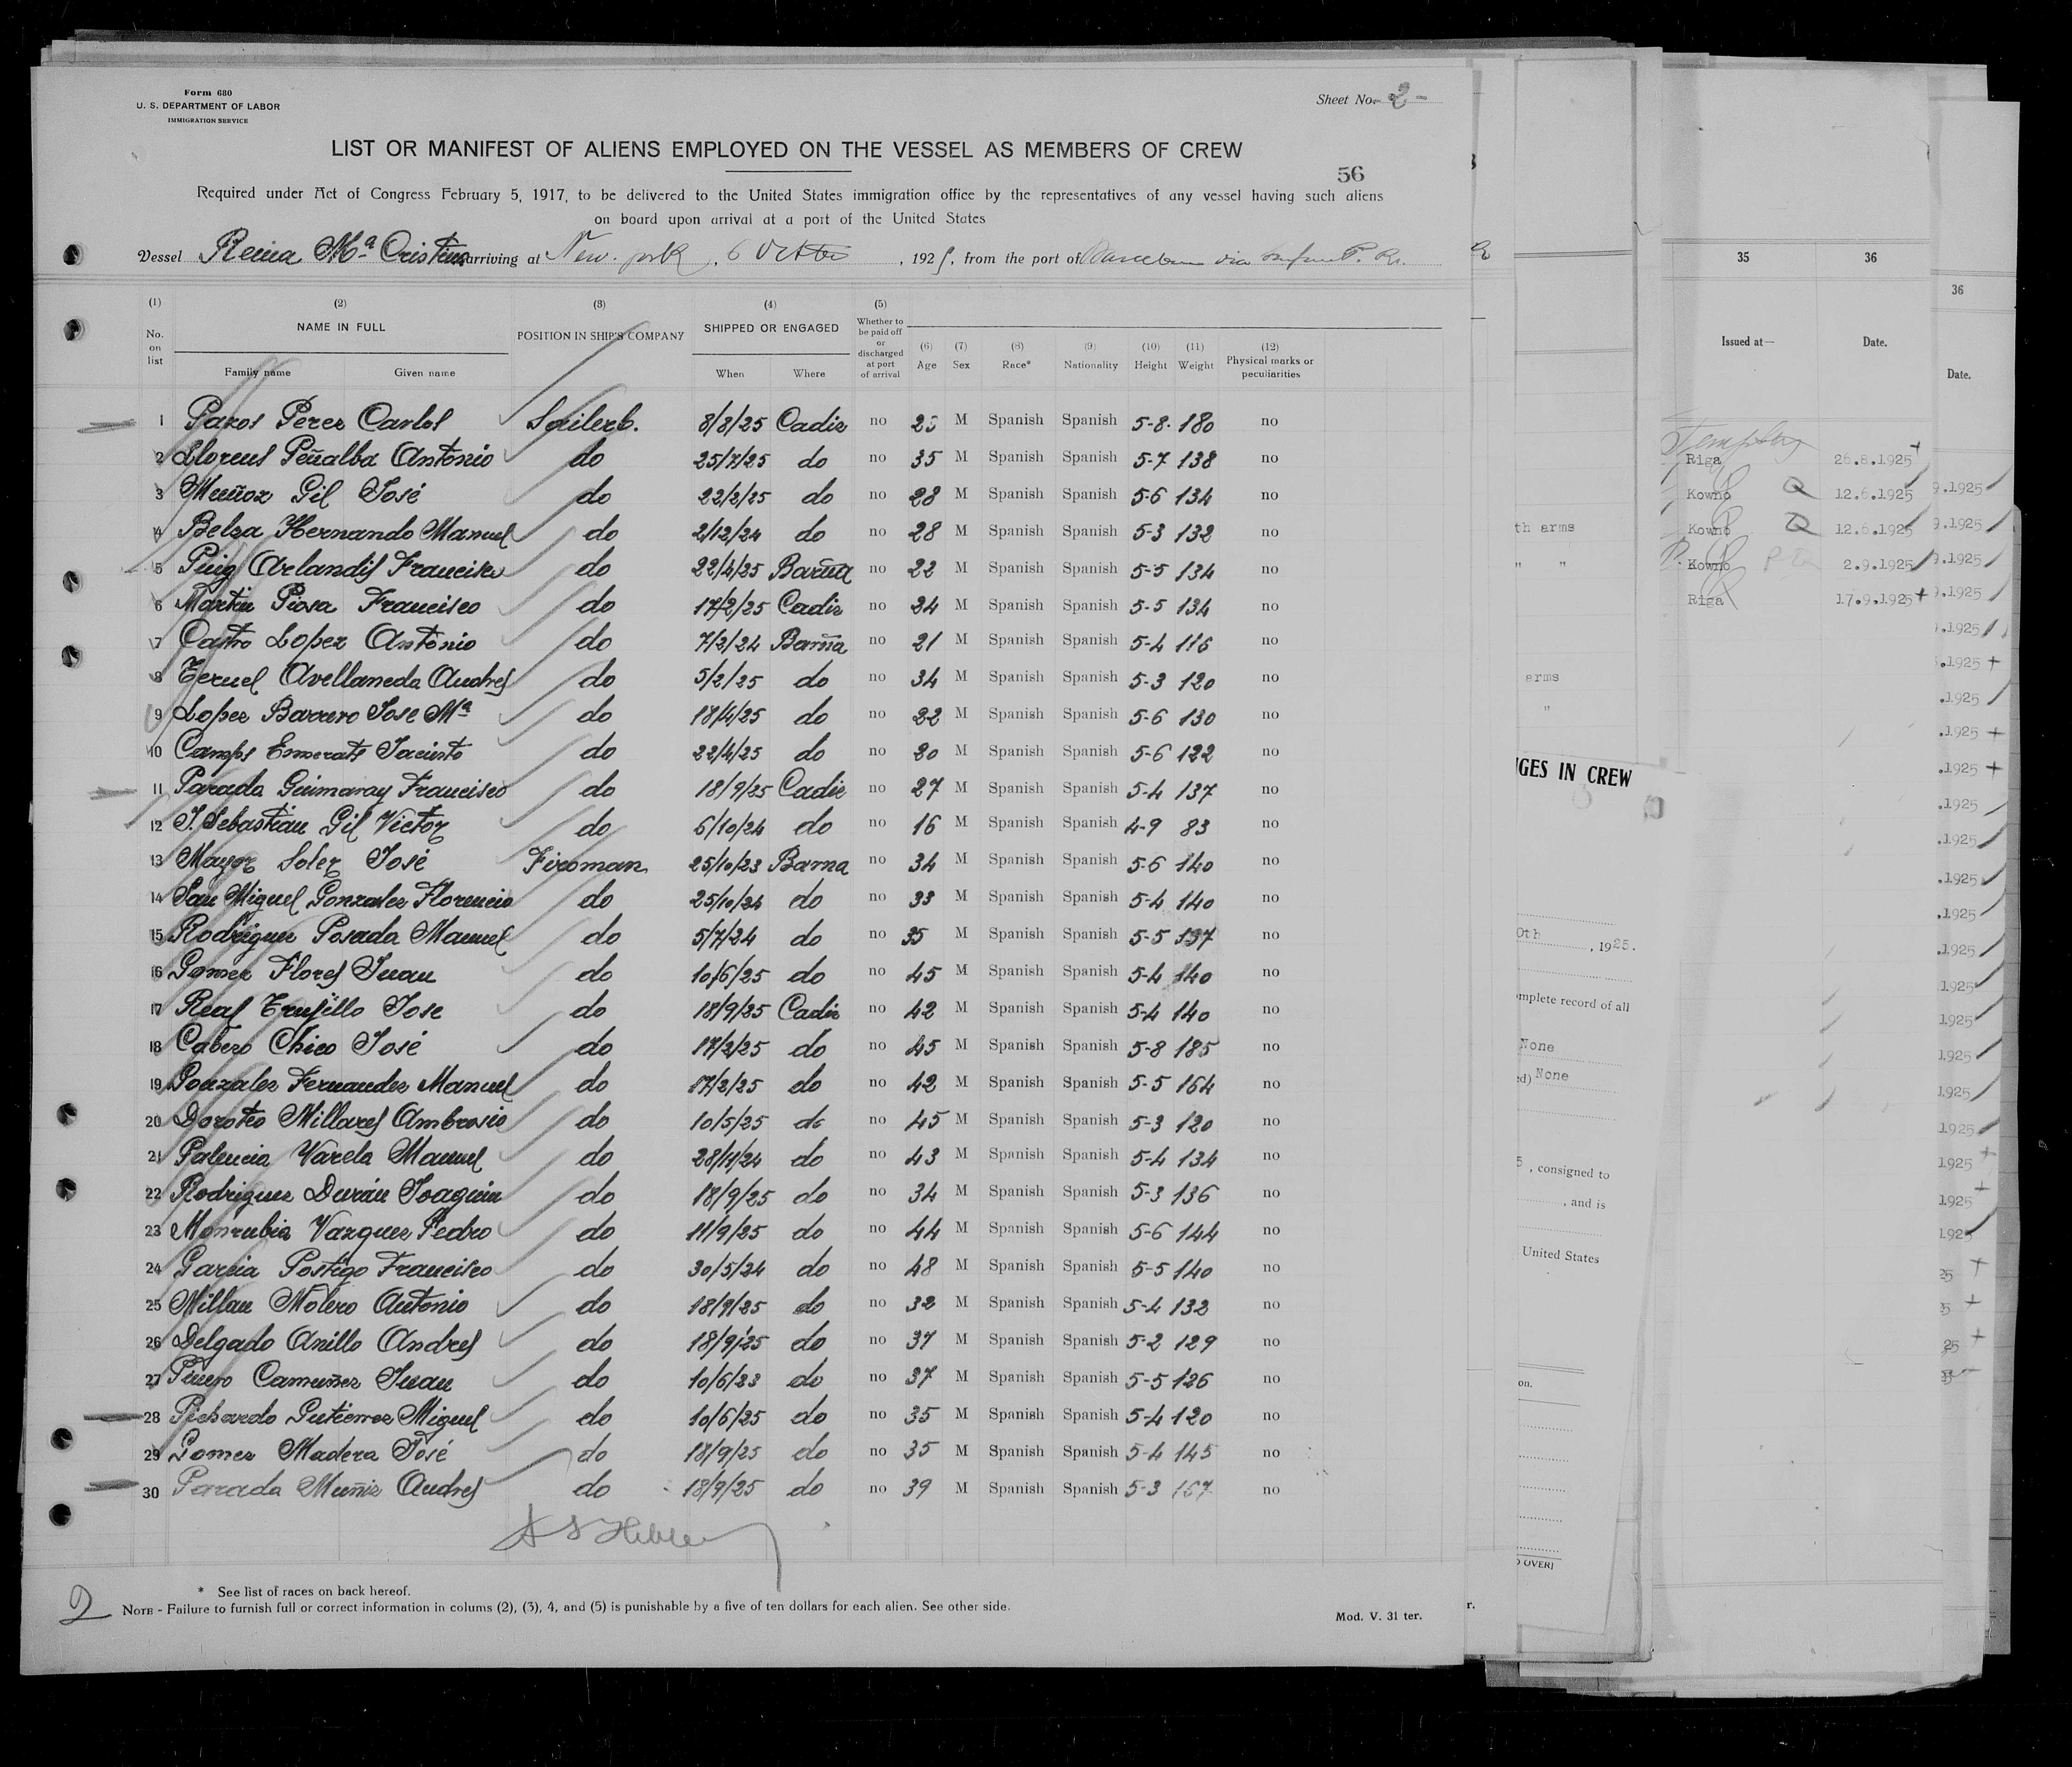 Form 680
U. S. DEPARTMENT OF LABOR
IMMIGRATION SERVICE
Sheet No. 2 -
LIST OR MANIFEST OF ALIENS EMPLOYED ON THE VESSEL AS MEMBERS OF CREW
56
Required under Act of Congress February 5, 1917, to be delivered to the United States immigration office by the representatives of any vessel having such aliens
on board upon arrival at a port of the United States
Vessel Reina Mª Cristina arriving at New-york, 6 , 1925, from the port of via P. R.
(1) (2) (3) (4) (5)
No. on list NAME IN FULL POSITION IN SHIP'S COMPANY SHIPPED OR ENGAGED Whether to be paid off or discharged at port of arrival (6) Age (7) Sex (8) Race* (9) Nationality (10) Height (11) Weight (12) Physical marks or peculiarities
Family name Given name When Where
1 Perez Carlos 8/8/25 Cadiz no 25 M Spanish Spanish 5-8 180 no
2 Llorens Peñalba Antonio do 25/7/25 do no 35 M Spanish Spanish 5-7 138 no
3 Muñoz Gil José do 22/2/25 do no 28 M Spanish Spanish 5-6 134 no
4 Belza Hernando Manuel do 2/12/24 do no 28 M Spanish Spanish 5-3 132 no
5 Puig Arlandis Francisco do 22/4/25 no 22 M Spanish Spanish 5-5 134 no
6 Martin Piosa Francisco do 17/2/25 Cadiz no 24 M Spanish Spanish 5-5 134 no
7 Castro Lopez Antonio do 7/2/24 Barña no 21 M Spanish Spanish 5-4 116 no
8 Teruel Avellaneda Andres do 5/2/25 do no 34 M Spanish Spanish 5-3 120 no
9 Lopez Barrero Jose Mª do 18/4/25 do no 22 M Spanish Spanish 5-6 130 no
10 Camps Emerats Jacinto do 22/4/25 do no 20 M Spanish Spanish 5-6 122 no
11 Parada Guimaray Francisco do 18/9/25 Cadiz no 27 M Spanish Spanish 5-4 137 no
12 J. Sebastian Gil Victor do 6/10/24 do no 16 M Spanish Spanish 4-9 83 no
13 Mayor Soler José Firoman 25/10/23 Barna no 34 M Spanish Spanish 5-6 140 no
14 San Miguel Gonzalez Florencio do 25/10/24 do no 33 M Spanish Spanish 5-4 140 no
15 Rodriguez Posada Manuel do 5/7/24 do no 35 M Spanish Spanish 5-5 137 no
16 Gomez Flores Juan do 10/6/25 do no 45 M Spanish Spanish 5-4 140 no
17 Real Trujillo Jose do 18/9/25 Cadiz no 42 M Spanish Spanish 5-4 140 no
18 Cabero Chico José do 17/2/25 do no 45 M Spanish Spanish 5-8 185 no
19 Gonzalez Fernandez Manuel do 17/2/25 do no 42 M Spanish Spanish 5-5 164 no
20 Doroteo Millares Ambrosio do 10/5/25 do no 45 M Spanish Spanish 5-3 120 no
21 Palencia Varela Manuel do 28/11/24 do no 43 M Spanish Spanish 5-4 134 no
22 Rodriguez Durán Joaquin do 18/9/25 do no 34 M Spanish Spanish 5-3 136 no
23 Monrubia Vazquez Pedro do 11/9/25 do no 44 M Spanish Spanish 5-6 144 no
24 Garcia Postigo Francisco do 30/5/24 do no 48 M Spanish Spanish 5-5 140 no
25 Millan Molero Antonio do 18/9/25 do no 32 M Spanish Spanish 5-4 132 no
26 Delgado Anillo Andres do 18/9/25 do no 37 M Spanish Spanish 5-2 129 no
27 Camuñez Juan do 10/6/23 do no 37 M Spanish Spanish 5-5 126 no
28 Pichardo Gutierrez Miguel do 10/6/25 do no 35 M Spanish Spanish 5-4 120 no
29 Gomez Madera José do 18/9/25 do no 35 M Spanish Spanish 5-4 145 no
30 Parada Muñiz Andres do 18/9/25 do no 39 M Spanish Spanish 5-3 167 no
2
* See list of races on back hereof.
NOTE - Failure to furnish full or correct information in colums (2), (3), 4, and (5) is punishable by a five of ten dollars for each alien. See other side.
Mod. V. 31 ter.
th arms
" "
arms
"
IGES IN CREW
0th , 1925.
omplete record of all
None
ed) None
5 , consigned to
, and is
United States
on.
O OVER]
r.
35 36
Issued at— Date.
Riga 26.8.1925
Kowno 12.6.1925
Kowno 12.6.1925
Kowno 2.9.1925
Riga 17.9.1925
36
Date.
9.1925
9.1925
9.1925
9.1925
.1925
.1925
.1925
.1925
.1925
.1925
.1925
.1925
.1925
.1925
1925
1925
1925
1925
1925
1925
1925
1925
25
25
25